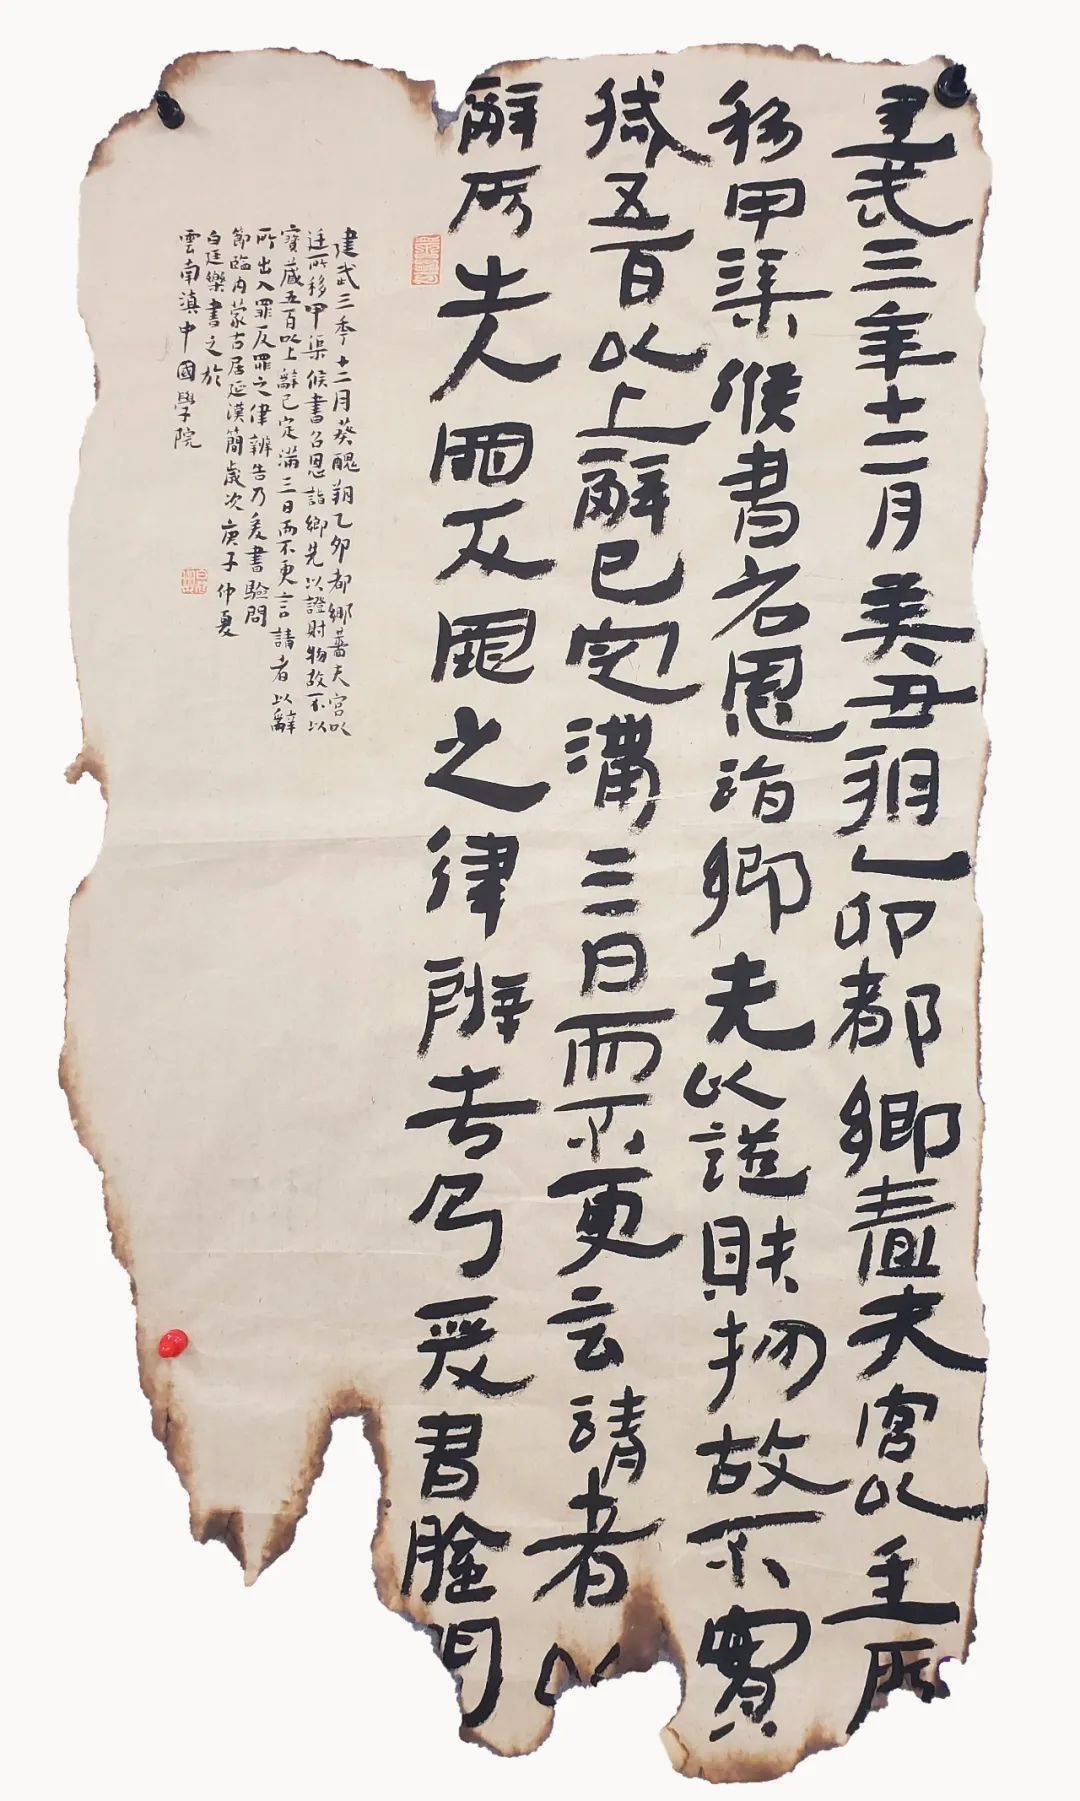 建武三年十二月癸丑朔乙卯都鄉嗇夫宮以廷所
移甲渠候書召恩詣鄉先以證財物故不實
臧五百以上辭已定滿三日而不更言請者以
辭所出入罪反罪之律辨告乃爰書驗問
建武三年十二月葵醜朔乙卯都鄉嗇夫宮以
廷所移甲渠候書召恩詣鄉先以證財物故不以
寶藏五百以上辭已定滿三日而不更言請者以辭
所出入罪反罪之律辨告乃爰書驗問
節臨內蒙古居延漢簡歲次庚子仲夏
白廷樂書之於
雲南滇中國學院